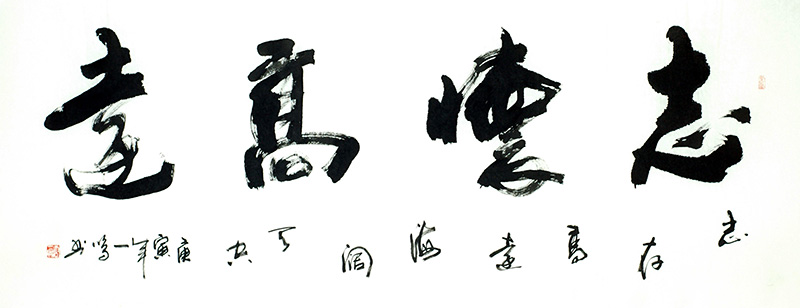 志懷高遠
志存高遠海阔天空庚寅年一鸣书